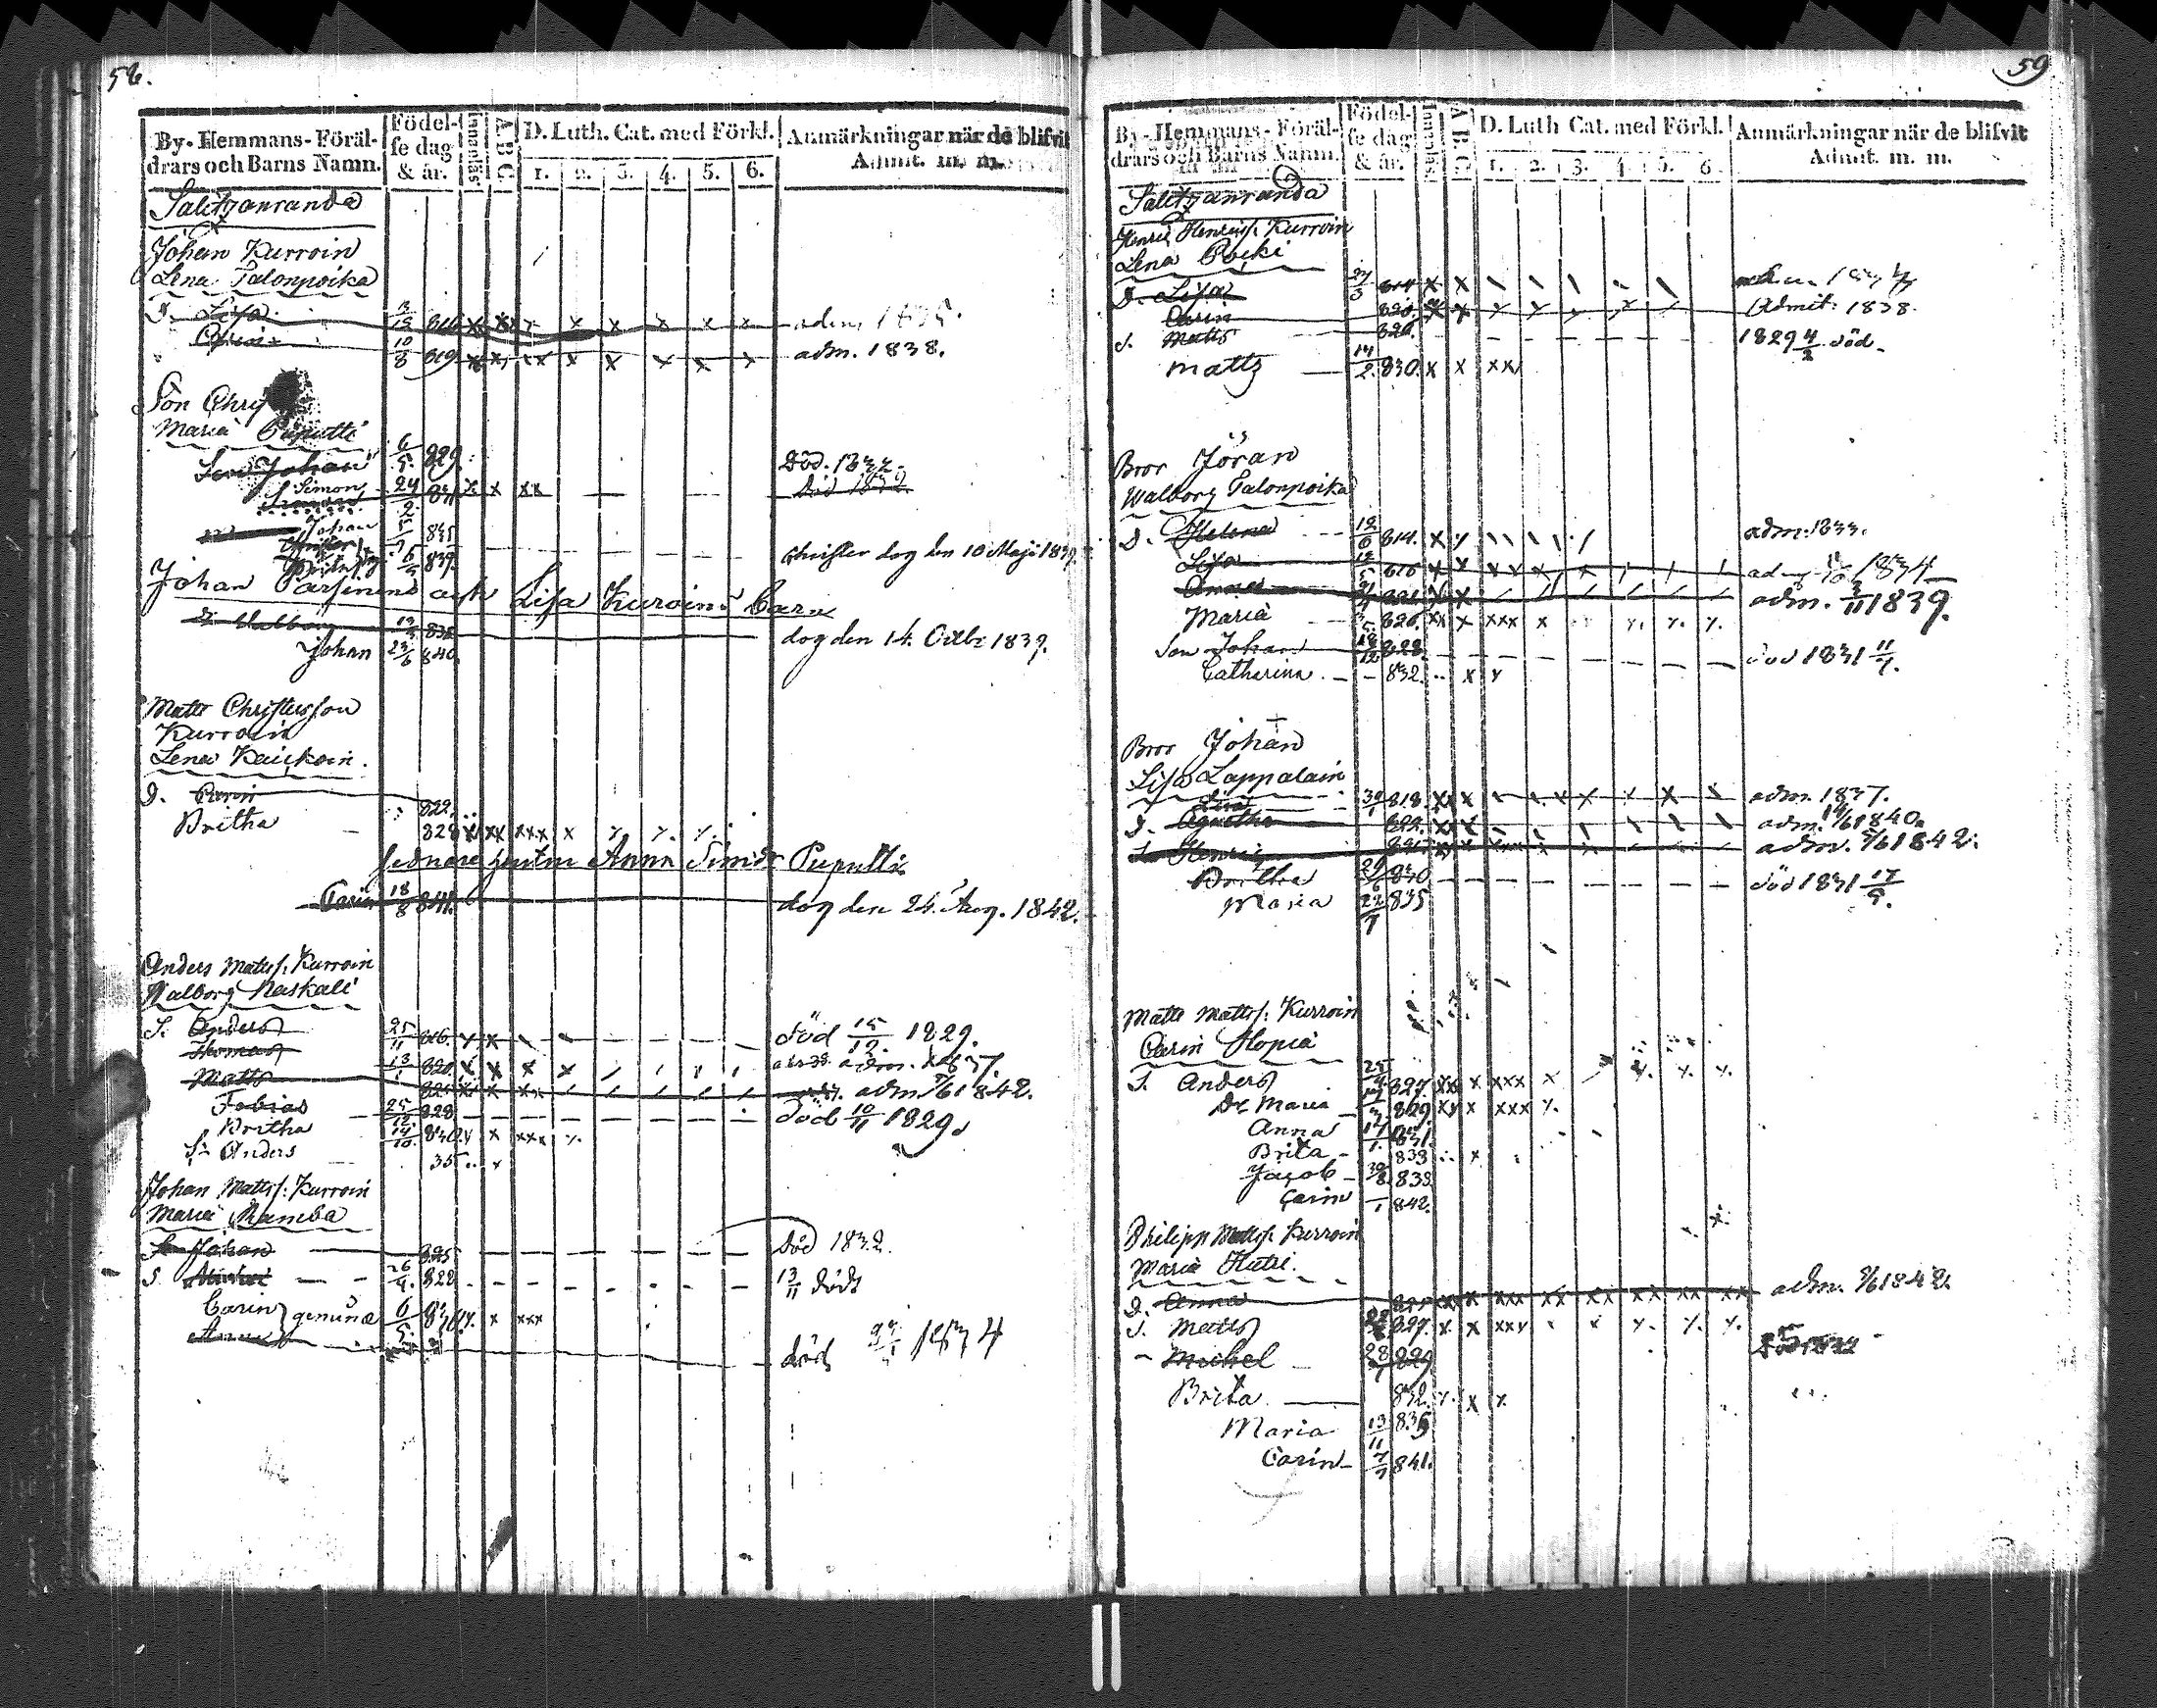 58.
By-Hemmans-Föräl-
drars och Barns Namn.
Födel-
se dag
& år.
Innanläs
A B C
D. Luth. Cat. med Förkl.
1. 2. 3. 4. 5. 6.
Anmärkningar när de blifvit
Admit. m. m.
Salitzanranda
Johan Kurroin
Lena Talonpoika
D. Lisa 816 adm. 1835.
10/8 819 adm. 1838.
Son Chry
Maria Puputti
Son Johan 6/5. 829. Död. 1832.
Simon 24/2. 831 Död 1832
Johan 5 835
839. Christer dog den 10 Maji 1839.
Johan Parsinens och Lisa Kuroins Barn
D. Walborg 13 838 dog den 14. Octbr 1839.
Johan 23/6 840.
Matts Christersson
Kurroin
Lena Kaukoin.
D. Carin 822.
Britha 828
Sednare hustru Anna Simdr Puputti
Carin 18/8 841. dog den 24. Aug. 1842.
Anders Matts: Kurroin
Walborg Naskali
S. Anders 25/11 816. Död 15/12. 1829.
Thomas 13/1 820. adm. 1837.
Matts 825 adm 5/6 1842.
Tobias 25/12 828 Död 10/11 1829.
Britha 14/10. 830
S. Anders 35
Johan Matts: Kurroin
Maria Ramba
Son Johan 825 Död 1832.
S. 26/4. 828 13/11 död
Carin } gemina 6/5. 830
Anna död 1834
59
By-Hemmans-Föräl-
drars och Barns Namn.
Födel-
se dag
& år.
Innanläs
A B C
D. Luth Cat. med Förkl.
1. 2. 3. 4. 5. 6
Anmärkningar när de blifvit
Admit. m. m.
Salitzanranda
Henric Henrics: Kurroin
Lena Pocki
D. Lisa 27/3 814 adm. 1834
Carin 820. Admit: 1838.
S. Matts 826. 1829 4/2 död.
Matts 14/2. 830.
Bror Jöran
Walborg Talonpoika
D. Helena 12/6 814. adm. 1833.
Lisa 12/5 816 adm 1834
821 adm. 3/11 1839.
Maria 3/5. 826.
Son Johan 18/12 828 död 1831 11/7.
Catharina 832.
Bror Johan
Lisa Lappalain
Lisa 30/1 818. adm. 1837.
D. Agnetha 822. adm. 14/6 1840.
S. Henric 825 adm. 5/6 1842.
Britha 24/6 830 död 1831 17/9.
Maria 22/7 835
Matts Matts: Kurroin
Carin Hopia
S. Anders 25/9 827.
Dr Maria 17/3. 829.
Anna 17/1. 831.
Brita 833
Jacob 30/8. 838.
Carin 1 842.
Philipp Matts: Kurroin
Maria Hutri.
D. Anna 825 adm. 5/6 1842.
S. Matts 827.
Michel 28/7 829
Brita 832.
Maria 13/11 835
Carin 7/7 841.